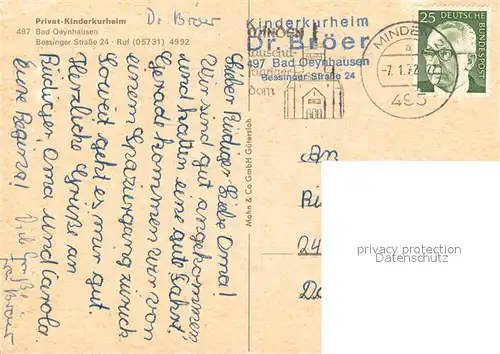 Privat-Kinderkurheim
497 Bad Oeynhausen
Bessinger Straße 24 · Ruf (05731) 4992
Dr. Bröer
Kinderkurheim
Dr. Bröer
497 Bad Oeynhausen
Bessinger Straße 24
MINDEN
tausend-
jähriger
dom
MINDEN
a
-7.1.72
495
25 DEUTSCHE
BUNDESPOST
Lieber Rüdiger, liebe Oma!
Wir sind gut angekommen
und hatten eine gute Fahrt.
Gerad kommen wir von
einem Spaziergang zurück.
Soweit geht es mir gut.
Herzliche Grüße an
Rüdiger, Oma und Carola.
Eure Regina!
Viele Grüße
Frau Bröer
Mohn & Co GmbH Gütersloh
An
24
privacy protection
Watermark